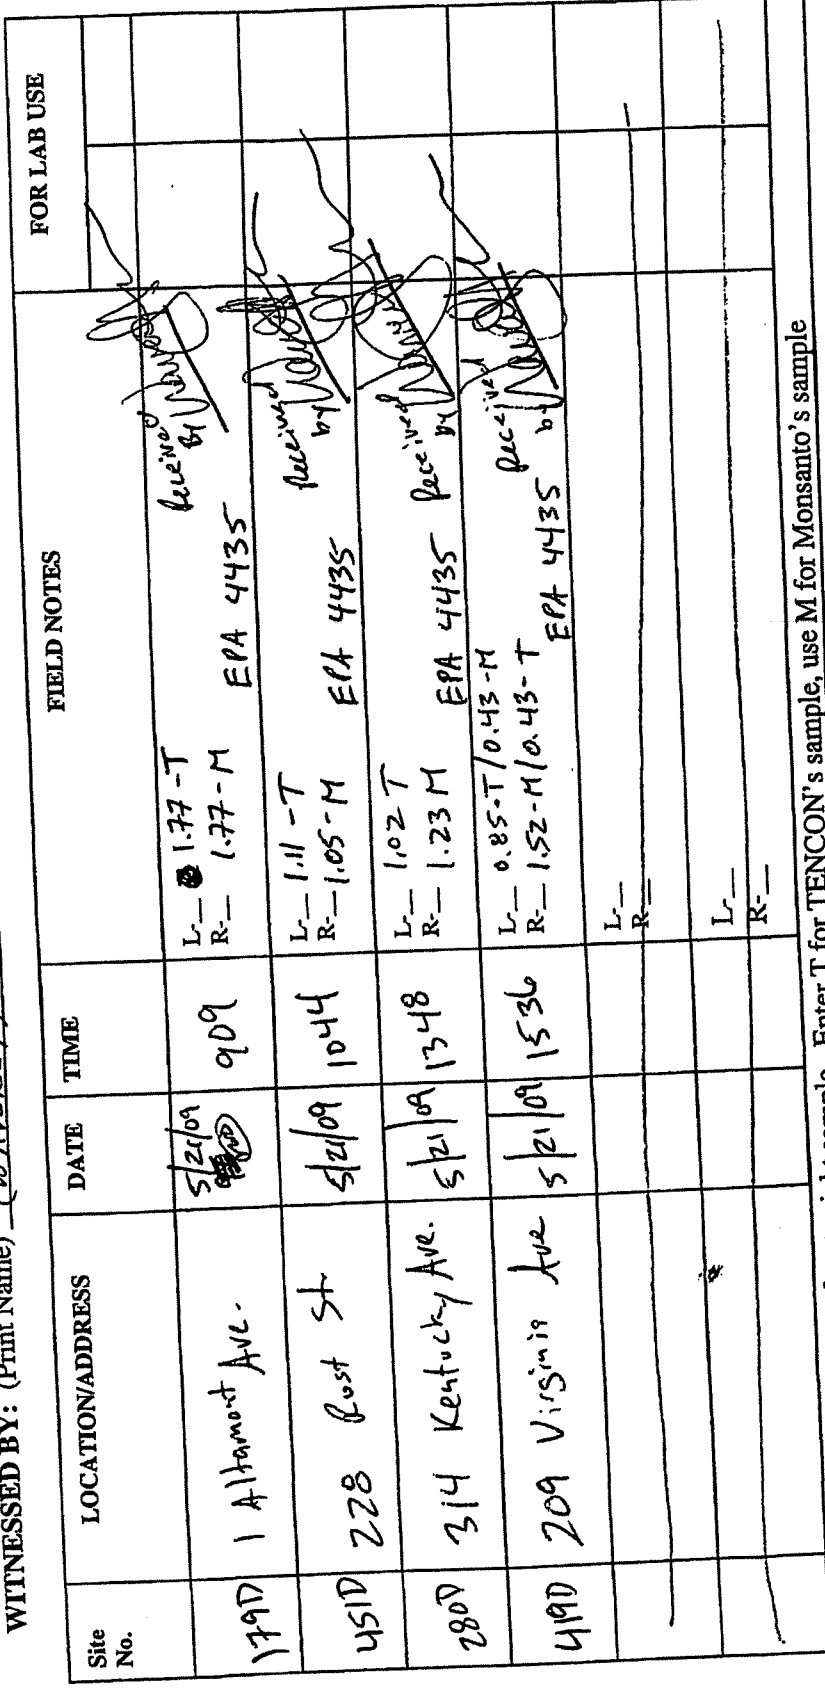 WITNESSED BY: (Print Name)
Site No.
LOCATION/ADDRESS
DATE
TIME
FIELD NOTES
FOR LAB USE
179D
1 Altamont Ave.
5/21/09
909
L-__ 1.77-T
R-__ 1.77-M
EPA 4435
Received
By
451D
228 Rust St
5/21/09
1044
L-__ 1.11-T
R-__ 1.05-M
EPA 4435
Received
by
280D
314 Kentucky Ave.
5/21/09
1348
L-__ 1.02 T
R-__ 1.23 M
EPA 4435
Received
by
419D
209 Virginia Ave
5/21/09
1536
L-__ 0.85-T/0.43-M
R-__ 1.52-M/0.43-T
EPA 4435
Received
by
L-__
R-__
L-__
R-__
sample. Enter T for TENCON's sample, use M for Monsanto's sample